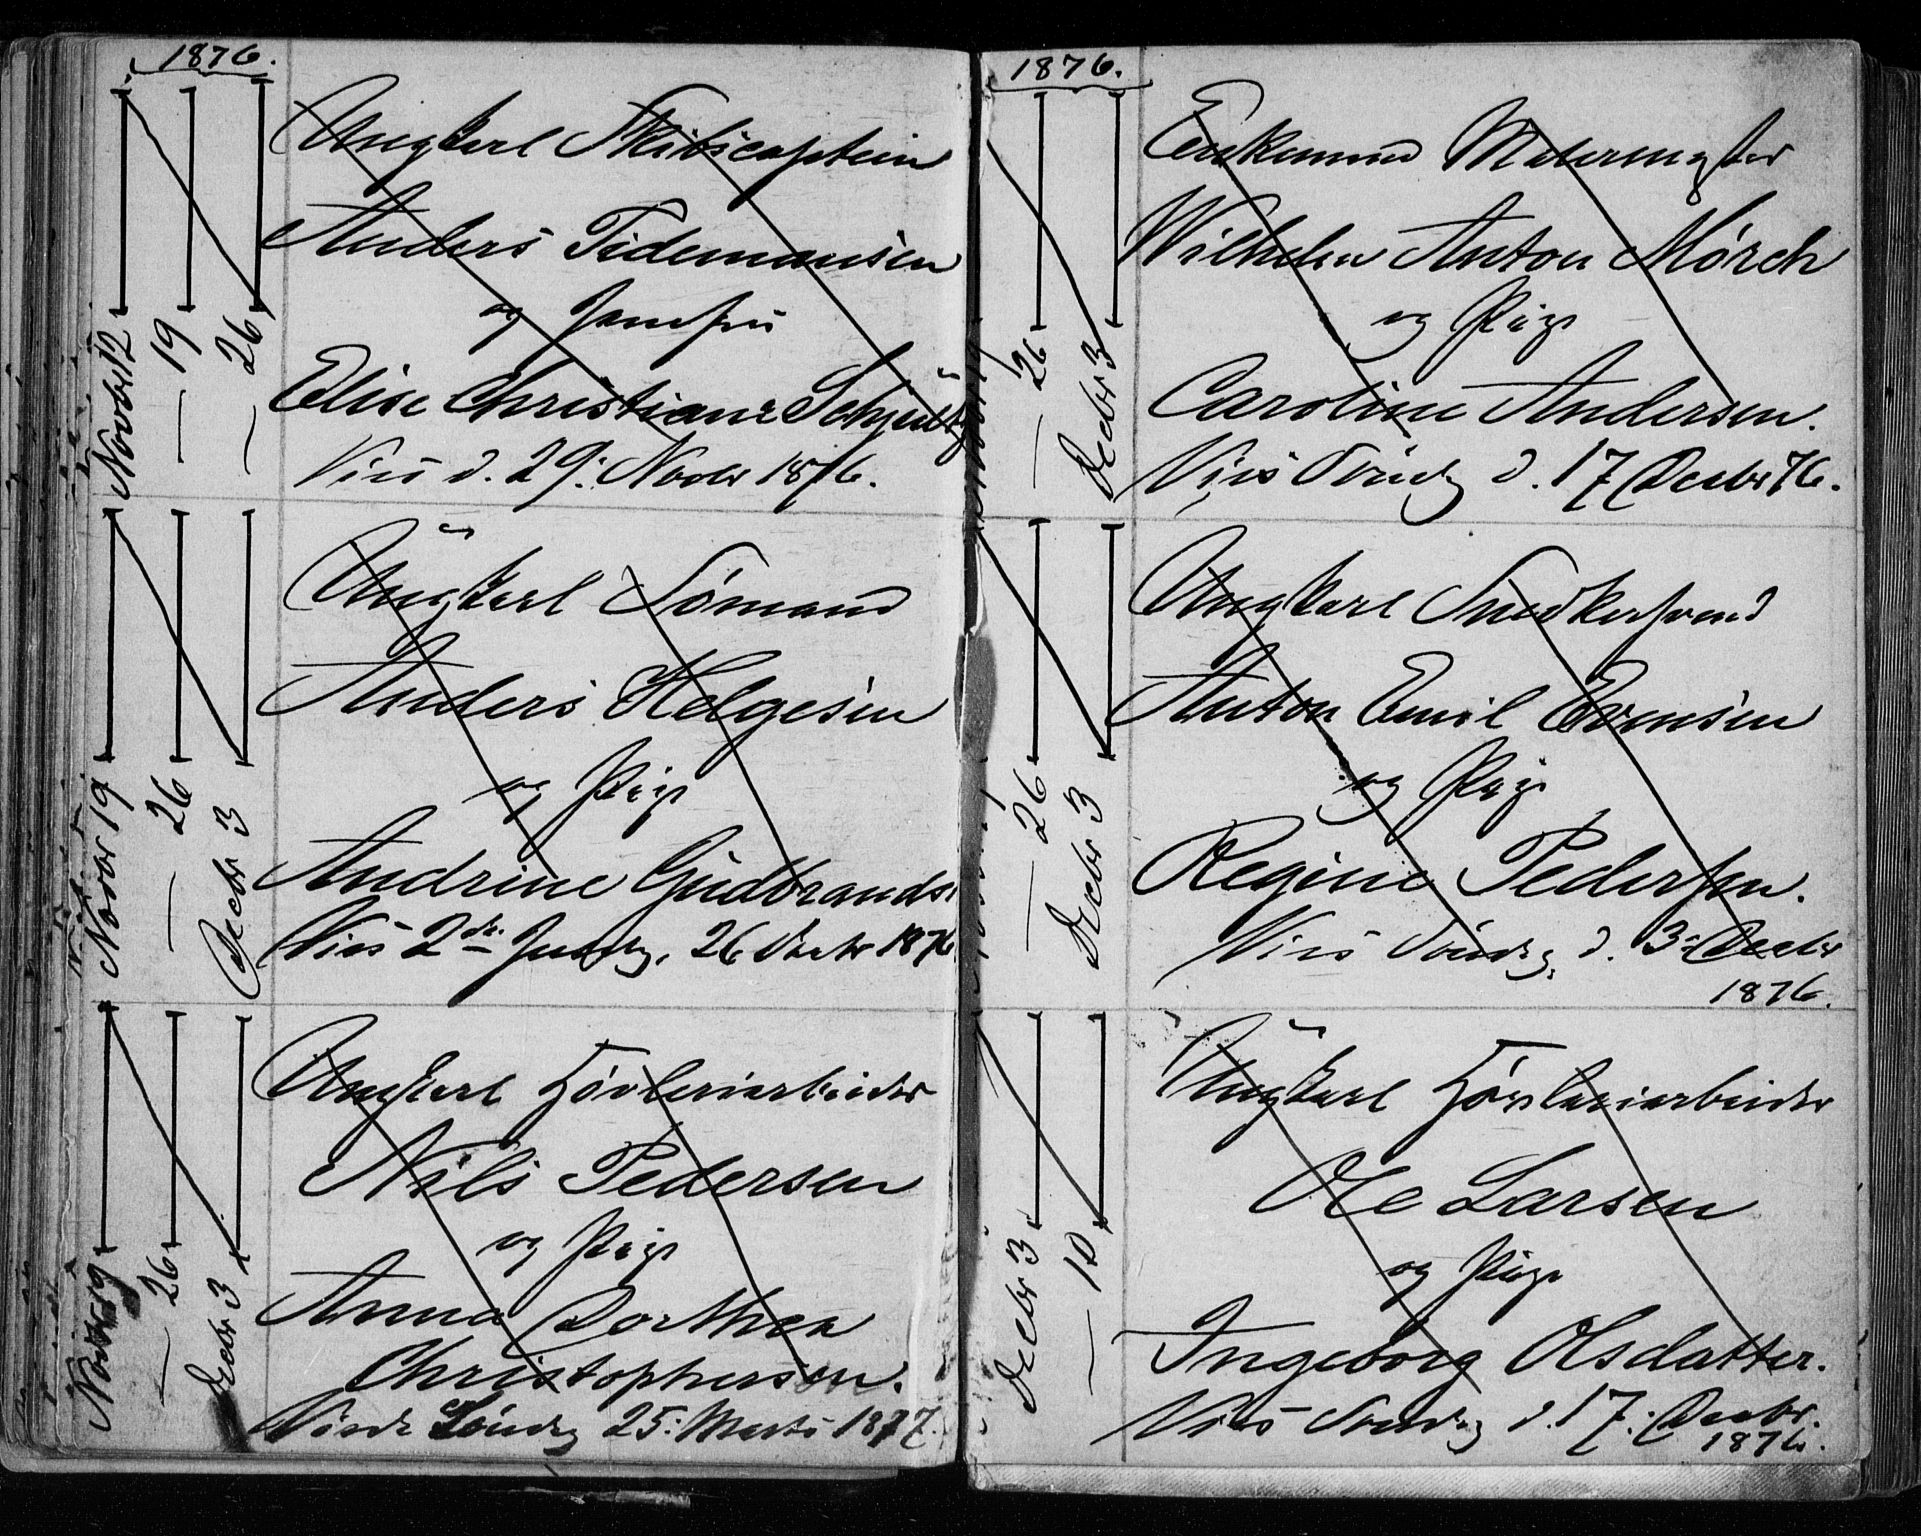 1876.
Novbr 12
— 19
— 26
Ungkarl Skibscaptein
Anders Tidemansen
og Jomfru
Elise Christiane Schjøtt
Vies d. 29: Novbr 1876.
Novbr 19
— 26
Decbr 3
Ungkarl Sømand
Anders Helgesen
og Pige
Andrine Gudbrands
Vies 2den Juledg. 26 Decbr 1876
Novbr 19
— 26
Decbr 3
Ungkarl Høvleriarbeider
Nils Pedersen
og Pige
Anna Dorthea
Christophersen.
Viede Søndg 25: Marts 1877.
1876.
— 26
Decbr 3
Enkemand Malermester
Wilhelm Anton Mørch
og Pige
Caroline Andersen.
Vies Søndg d. 17 Decbr 76.
— 26
Decbr 3
Ungkarl Snedkersvend
Anton Emil Evensen
og Pige
Regine Pedersen.
Vies Søndg. d. 3: Decbr
1876.
Decbr 3
— 10
Ungkarl Høvleriarbeider
Ole Larsen
og Pige
Ingeborg Olsdatter.
Vies Søndg d. 17: Decbr.
1876.